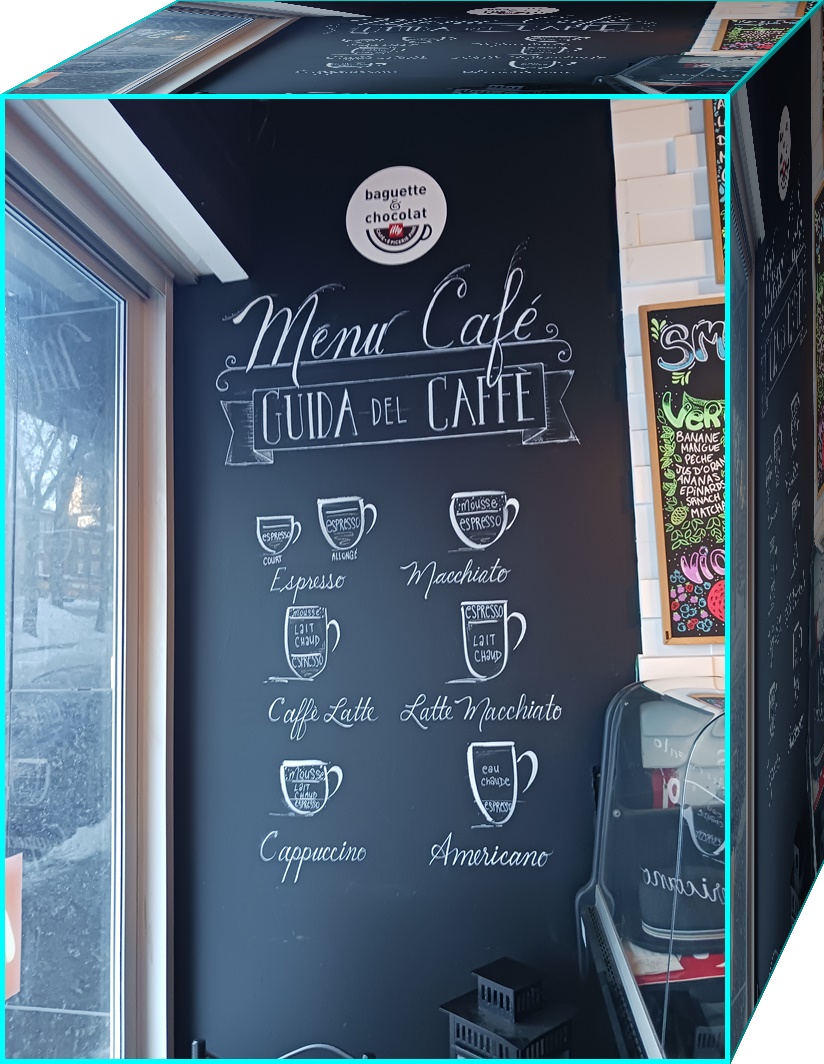 baguette
&
chocolat
illy
CAFÉ • ÉPICERIE FINE
Menu Café
GUIDA DEL CAFFÈ
ESPRESSO
COURT
ESPRESSO
ALLONGÉ
Espresso
mousse
ESPRESSO
Macchiato
mousse
LAIT
CHAUD
ESPRESSO
Caffè Latte
ESPRESSO
LAIT
CHAUD
Latte Macchiato
mousse
LAIT
CHAUD
ESPRESSO
Cappuccino
eau
chaude
ESPRESSO
Americano
SM
VER
BANANE
MANGUE
PÊCHE
JUS D'ORAN
ANANAS
EPINARDS
MATCHA
VIO